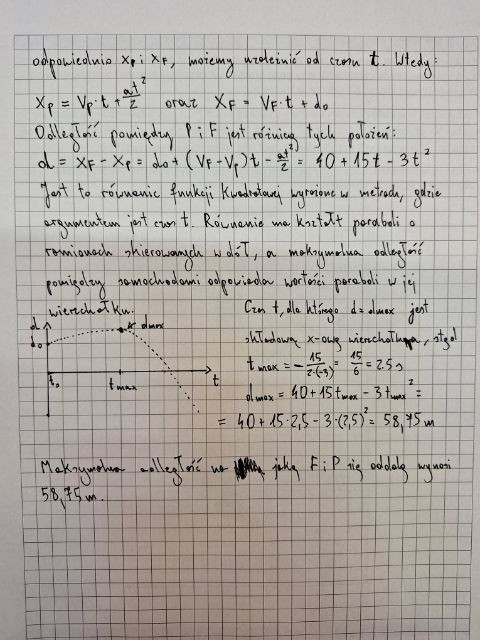 odpowiednio xₚ i x_F, możemy uzależnić od czasu t. Wtedy:
xₚ = Vₚ·t + at²/2 oraz x_F = V_F·t + d₀
Odległość pomiędzy P i F jest różnicą tych położeń:
d = x_F - xₚ = d₀ + (V_F - Vₚ)t - at²/2 = 40 + 15t - 3t²
Jest to równanie funkcji kwadratowej wyrażone w metrach, gdzie
argumentem jest czas t. Równanie ma kształt paraboli o
ramionach skierowanych w dół, a maksymalna odległość
pomiędzy samochodami odpowiada wartości paraboli w jej
wierzchołku.
Czas t, dla którego d = dmax jest
składową x-ową wierzchołka, stąd
t max = -15/2·(-3) = 15/6 = 2.5 s
dmax = 40 + 15tmax - 3tmax² =
= 40 + 15·2,5 - 3·(2,5)² = 58,75 m
d
d₀
dmax
t₀
tmax
t
Maksymalna odległość na jaką F i P się oddalą wynosi
58,75 m.